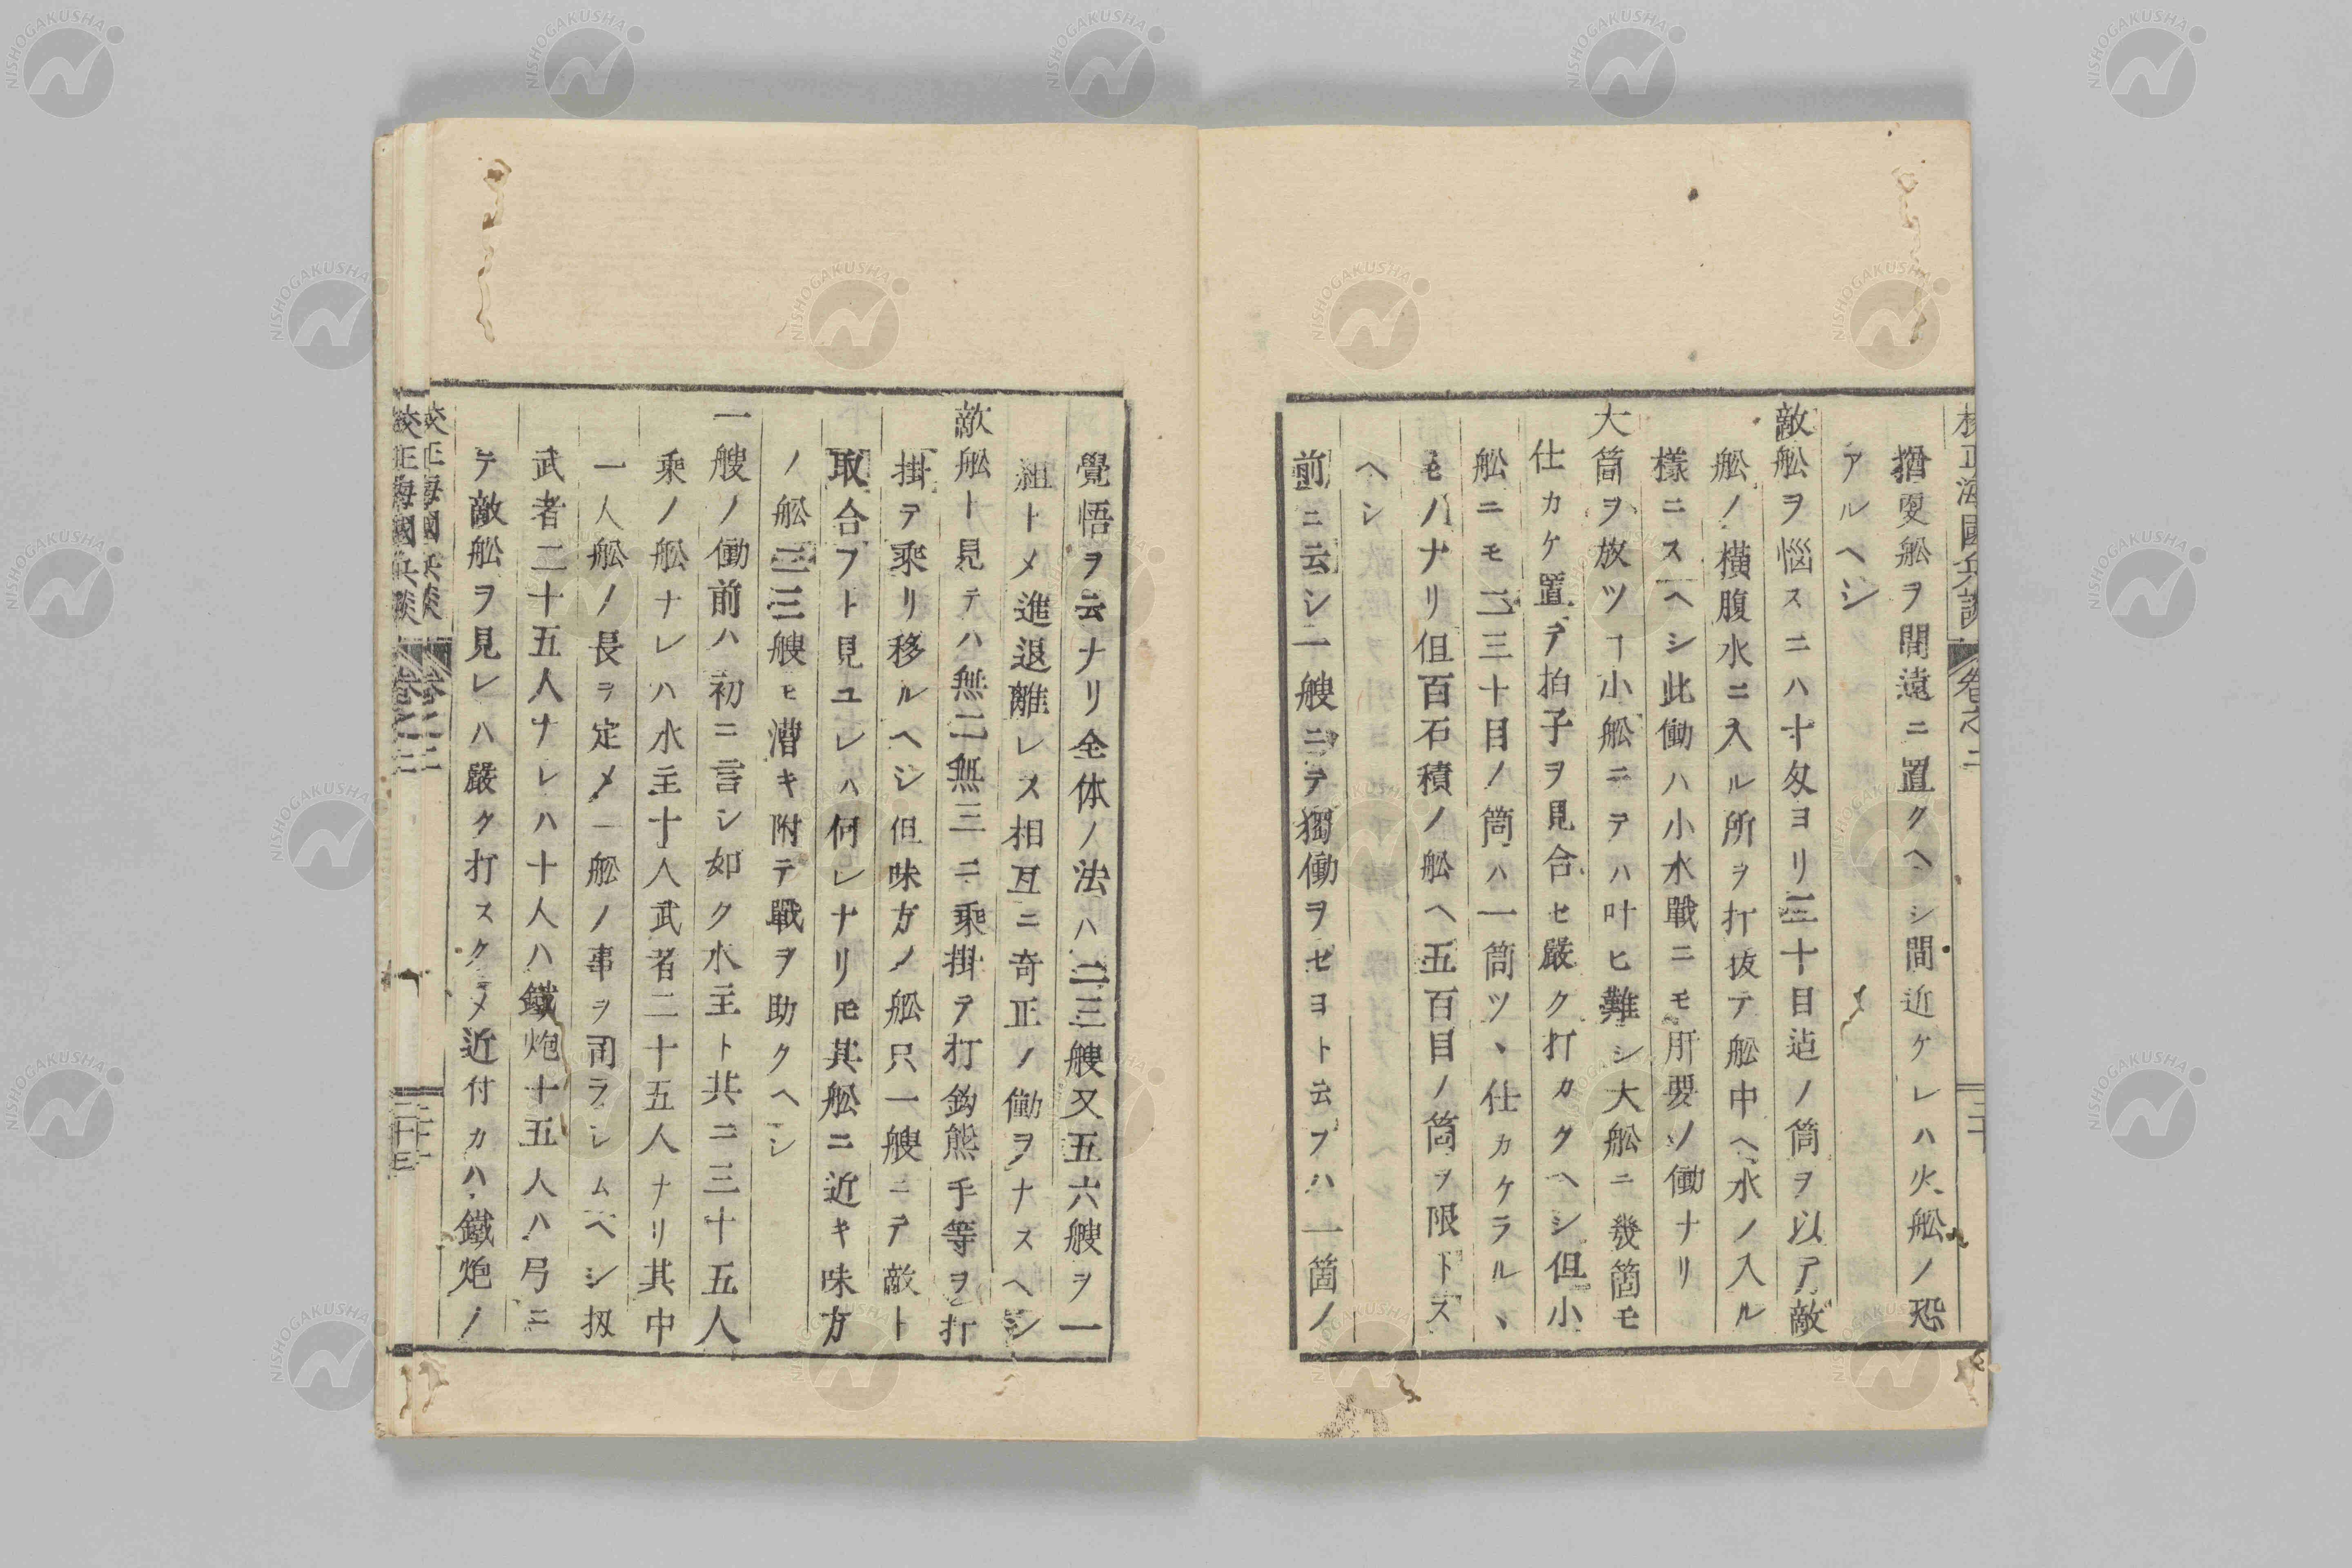 校正海國兵談 卷之二
猶更舩ヲ間遠ニ置クヘシ間近ケレハ火舩ノ恐
アルヘシ
敵舩ヲ惱スニハ十匁ヨリ三十目迠ノ筒ヲ以テ敵
舩ノ横腹水ニ入ル所ヲ打抜テ舩中ヘ水ノ入ル
樣ニスヘシ此働ハ小水戰ニモ肝要ノ働ナリ
大筒ヲ放ツヿ小舩ニテハ叶ヒ難シ大舩ニ幾箇モ
仕カケ置テ拍子ヲ見合セ嚴ク打カクヘシ但小
舩ニモ二三十目ノ筒ハ一筒ツヽ仕カケラルヽ
モノナリ但百石積ノ舩ヘ五百目ノ筒ヲ限トス
ヘシ
前ニ云シ一艘ニテ獨働ヲセヨト云フハ一箇ノ
覺悟ヲ云ナリ全体ノ法ハ二三艘又五六艘ヲ一
組トメ進退離レス相互ニ奇正ノ働ヲナスヘシ
敵舩ト見テハ無二無三ニ乘掛テ打鈎熊手等ヲ打
掛テ乘リ移ルヘシ但味方ノ舩只一艘ニテ敵ト
取合フト見ユレハ何レナリ𪜈其舩ニ近キ味方
ノ舩二三艘モ漕キ附テ戰ヲ助クヘシ
一艘ノ働前ハ初ニ言シ如ク水主ト共ニ三十五人
乘ノ舩ナレハ水主十人武者二十五人ナリ其中
一人舩ノ長ヲ定メ一舩ノ事ヲ司ラシムヘシ扨
武者二十五人ナレハ十人ハ鐵炮十五人ハ弓ニ
テ敵舩ヲ見レハ嚴ク打スクメ近付カハ鐵炮ノ
校正海國兵談 卷之二
校正海國兵談 卷之二 二十三